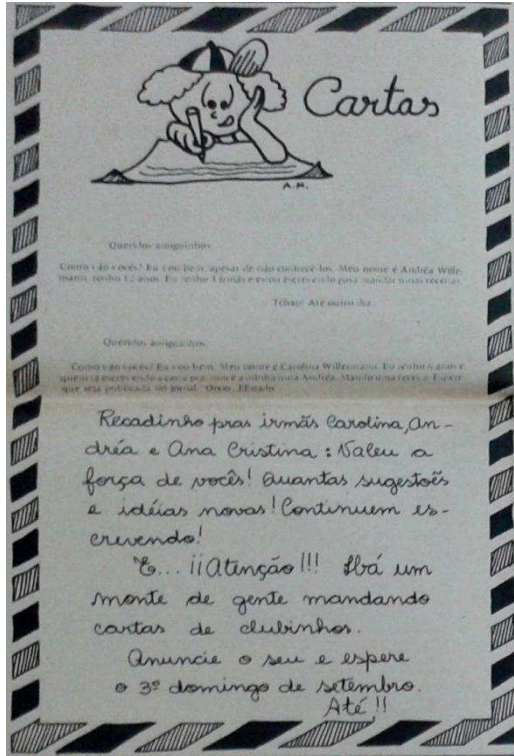 Cartas
A.M.
Queridos amiguinhos
Como vão vocês? Eu vou bem, apesar de não conhecê-los. Meu nome é Andréa Wille-
mann, tenho 12 anos. Eu tenho 3 irmãs e estou escrevendo para mandar umas receitas.
Tchau! Até outro dia.
Queridos amiguinhos,
Como vão vocês? Eu vou bem. Meu nome é Carolina Willemann. Eu tenho anos e
quem tá escrevendo a carta pra mim é a minha irmã Andréa. Mando uma receita. Espero
que seja publicada no jornal. OEstado
Recadinho pras irmãs Carolina, An-
dréa e Ana Cristina: Valeu a
força de vocês! Quantas sugestões
e idéias novas! Continuem es-
crevendo!
E... ¡¡Atenção!!! Há um
monte de gente mandando
cartas de clubinhos.
Anuncie o seu e espere
o 3º domingo de setembro.
Até!!